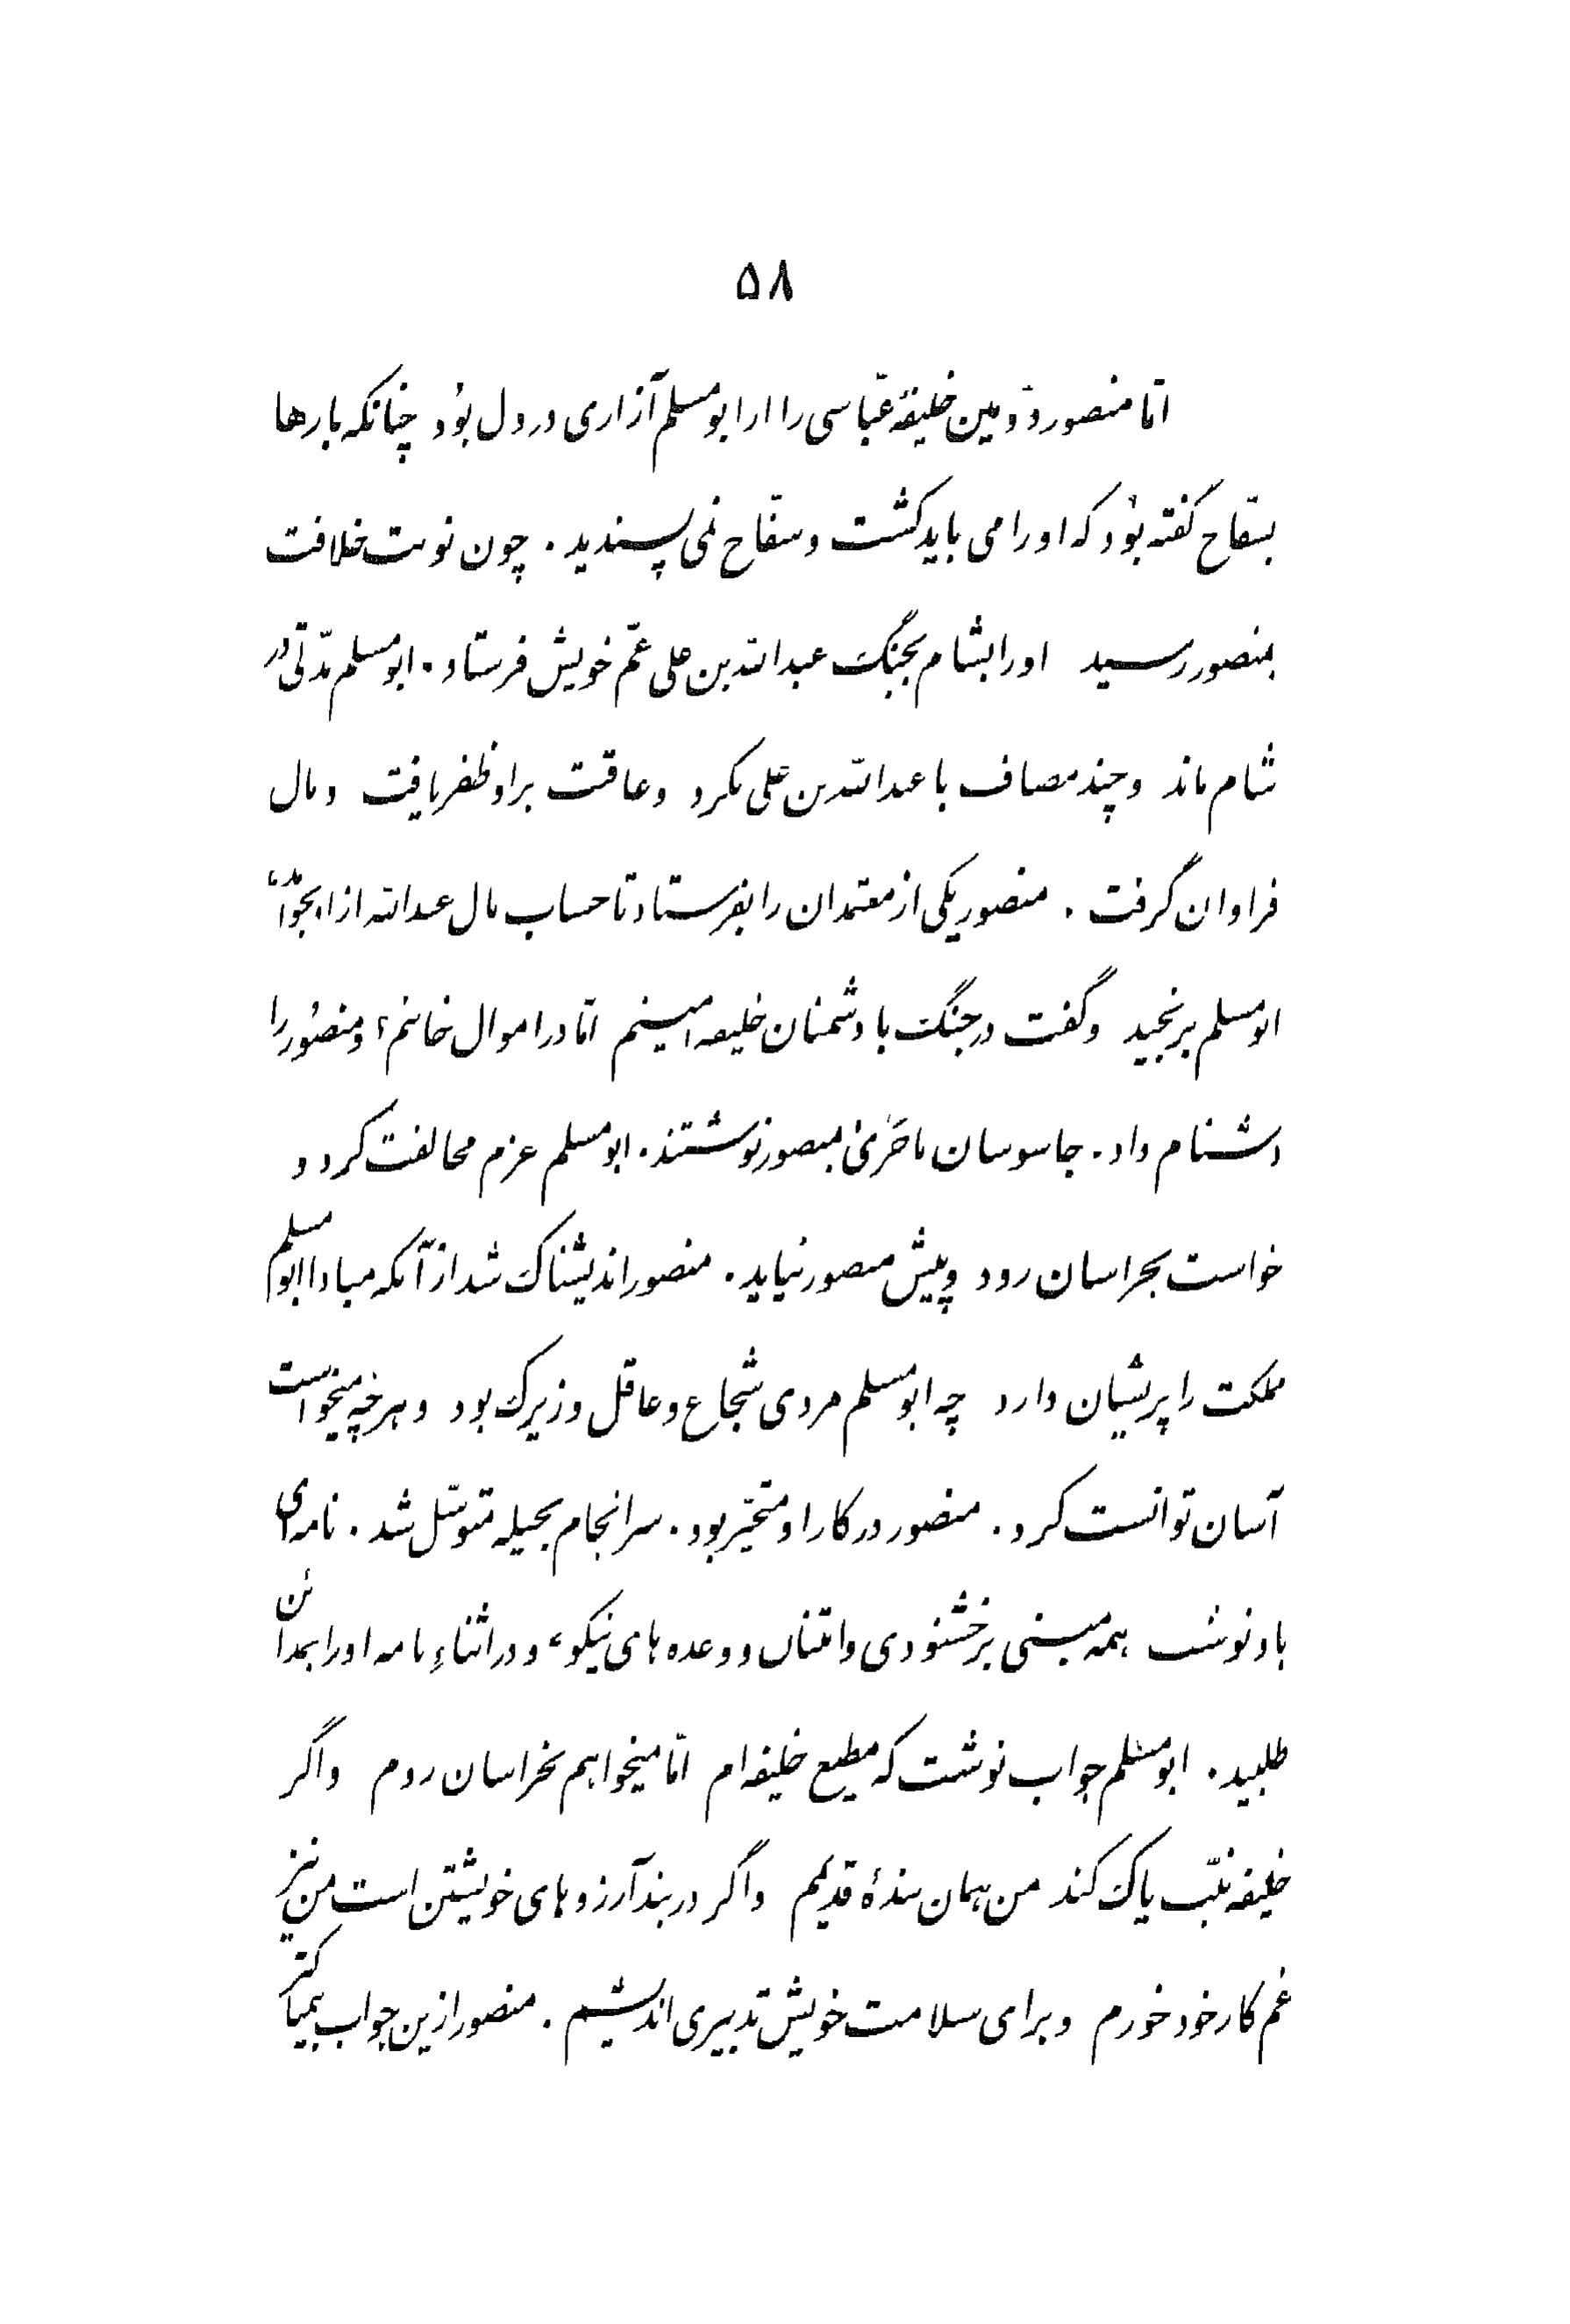 ۵۸
امّا منصور دوّمین خلیفهٔ عبّاسی را از ابومسلم آزاری در دل بود چنانکه بارها
بسفّاح گفته بود که او را می باید کشت و سفّاح نمی پسندید. چون نوبت خلافت
بمنصور رسید او را بشام بجنگ عبدالله بن علی عمّ خویش فرستاد. ابومسلم مدّتی در
شام ماند و چند مصاف با عبدالله بن علی بکرد و عاقبت بر او ظفر یافت و مال
فراوان گرفت. منصور یکی از معتمدان را بفرستاد تا حساب مال عبدالله از او بخواند،
ابومسلم برنجید و گفت در جنگ با دشمنان خلیفه امینم امّا در اموال خائنم؟ و منصور را
دشنام داد. جاسوسان ماجری بمنصور نوشتند. ابومسلم عزم مخالفت کرد و
خواست بخراسان رود و پیش منصور نیاید. منصور اندیشناک شد از آنکه مبادا ابومسلم
مملکت را پریشان دارد چه ابومسلم مردی شجاع و عاقل و زیرک بود و هرچه میخواست
آسان توانست کرد. منصور در کار او متحیّر بود. سرانجام بحیله متوسّل شد. نامه ای
باو نوشت همه مبنی بر خشنودی و امتنان و وعده های نیکو، و در اثناءِ نامه او را بمدائن
طلبید. ابومسلم جواب نوشت که مطیع خلیفه ام امّا میخواهم بخراسان روم و اگر
خلیفه نیّت پاک کند من همان بندهٔ قدیمم و اگر در بند آرزوهای خویشتن است من نیز
غم کار خود خورم و برای سلامت خویش تدبیری اندیشم. منصور ازین جواب بیمناکتر